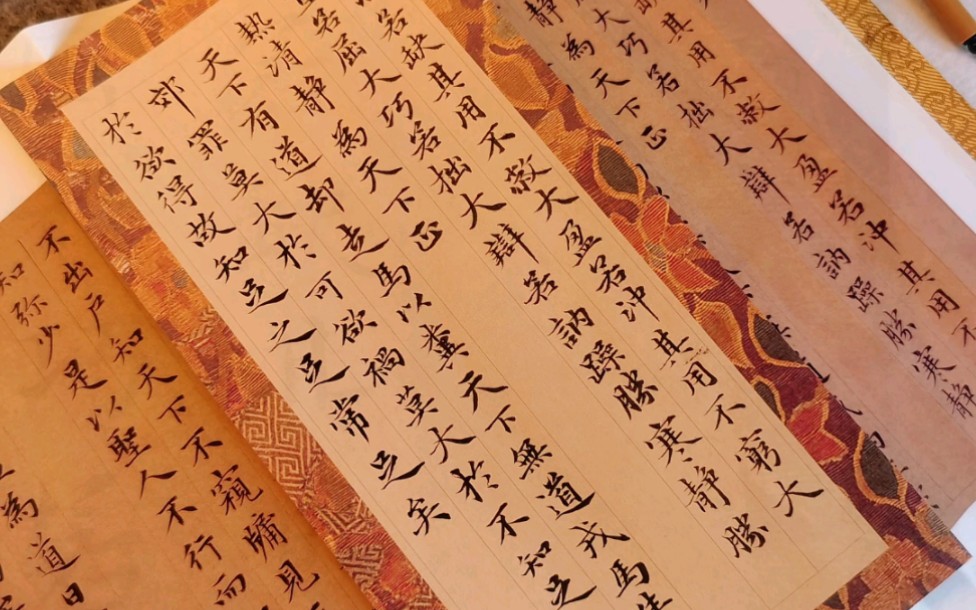 其用不敝大盈若冲其用不
大巧若拙大辯若訥躁勝寒静
静為天下正
若缺其用不敝大盈若冲其用不窮大
若屈大巧若拙大辯若訥躁勝寒静勝
热清静為天下正
天下有道却走馬以糞天下無道戎馬生
郊罪莫大於可欲禍莫大於不知足
於欲得故知足之足常足矣
不出戶知天下不窺牖見
知弥少是以聖人不行而
為道日